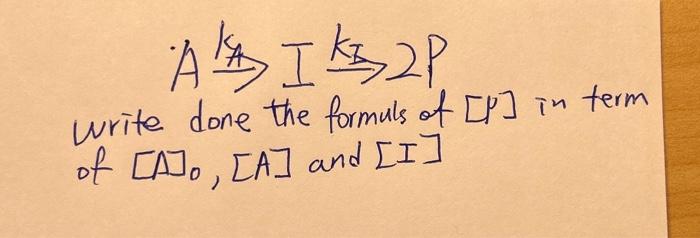 A kA→ I kI→ 2P
write done the formuls of [P] in term
of [A]₀, [A] and [I]